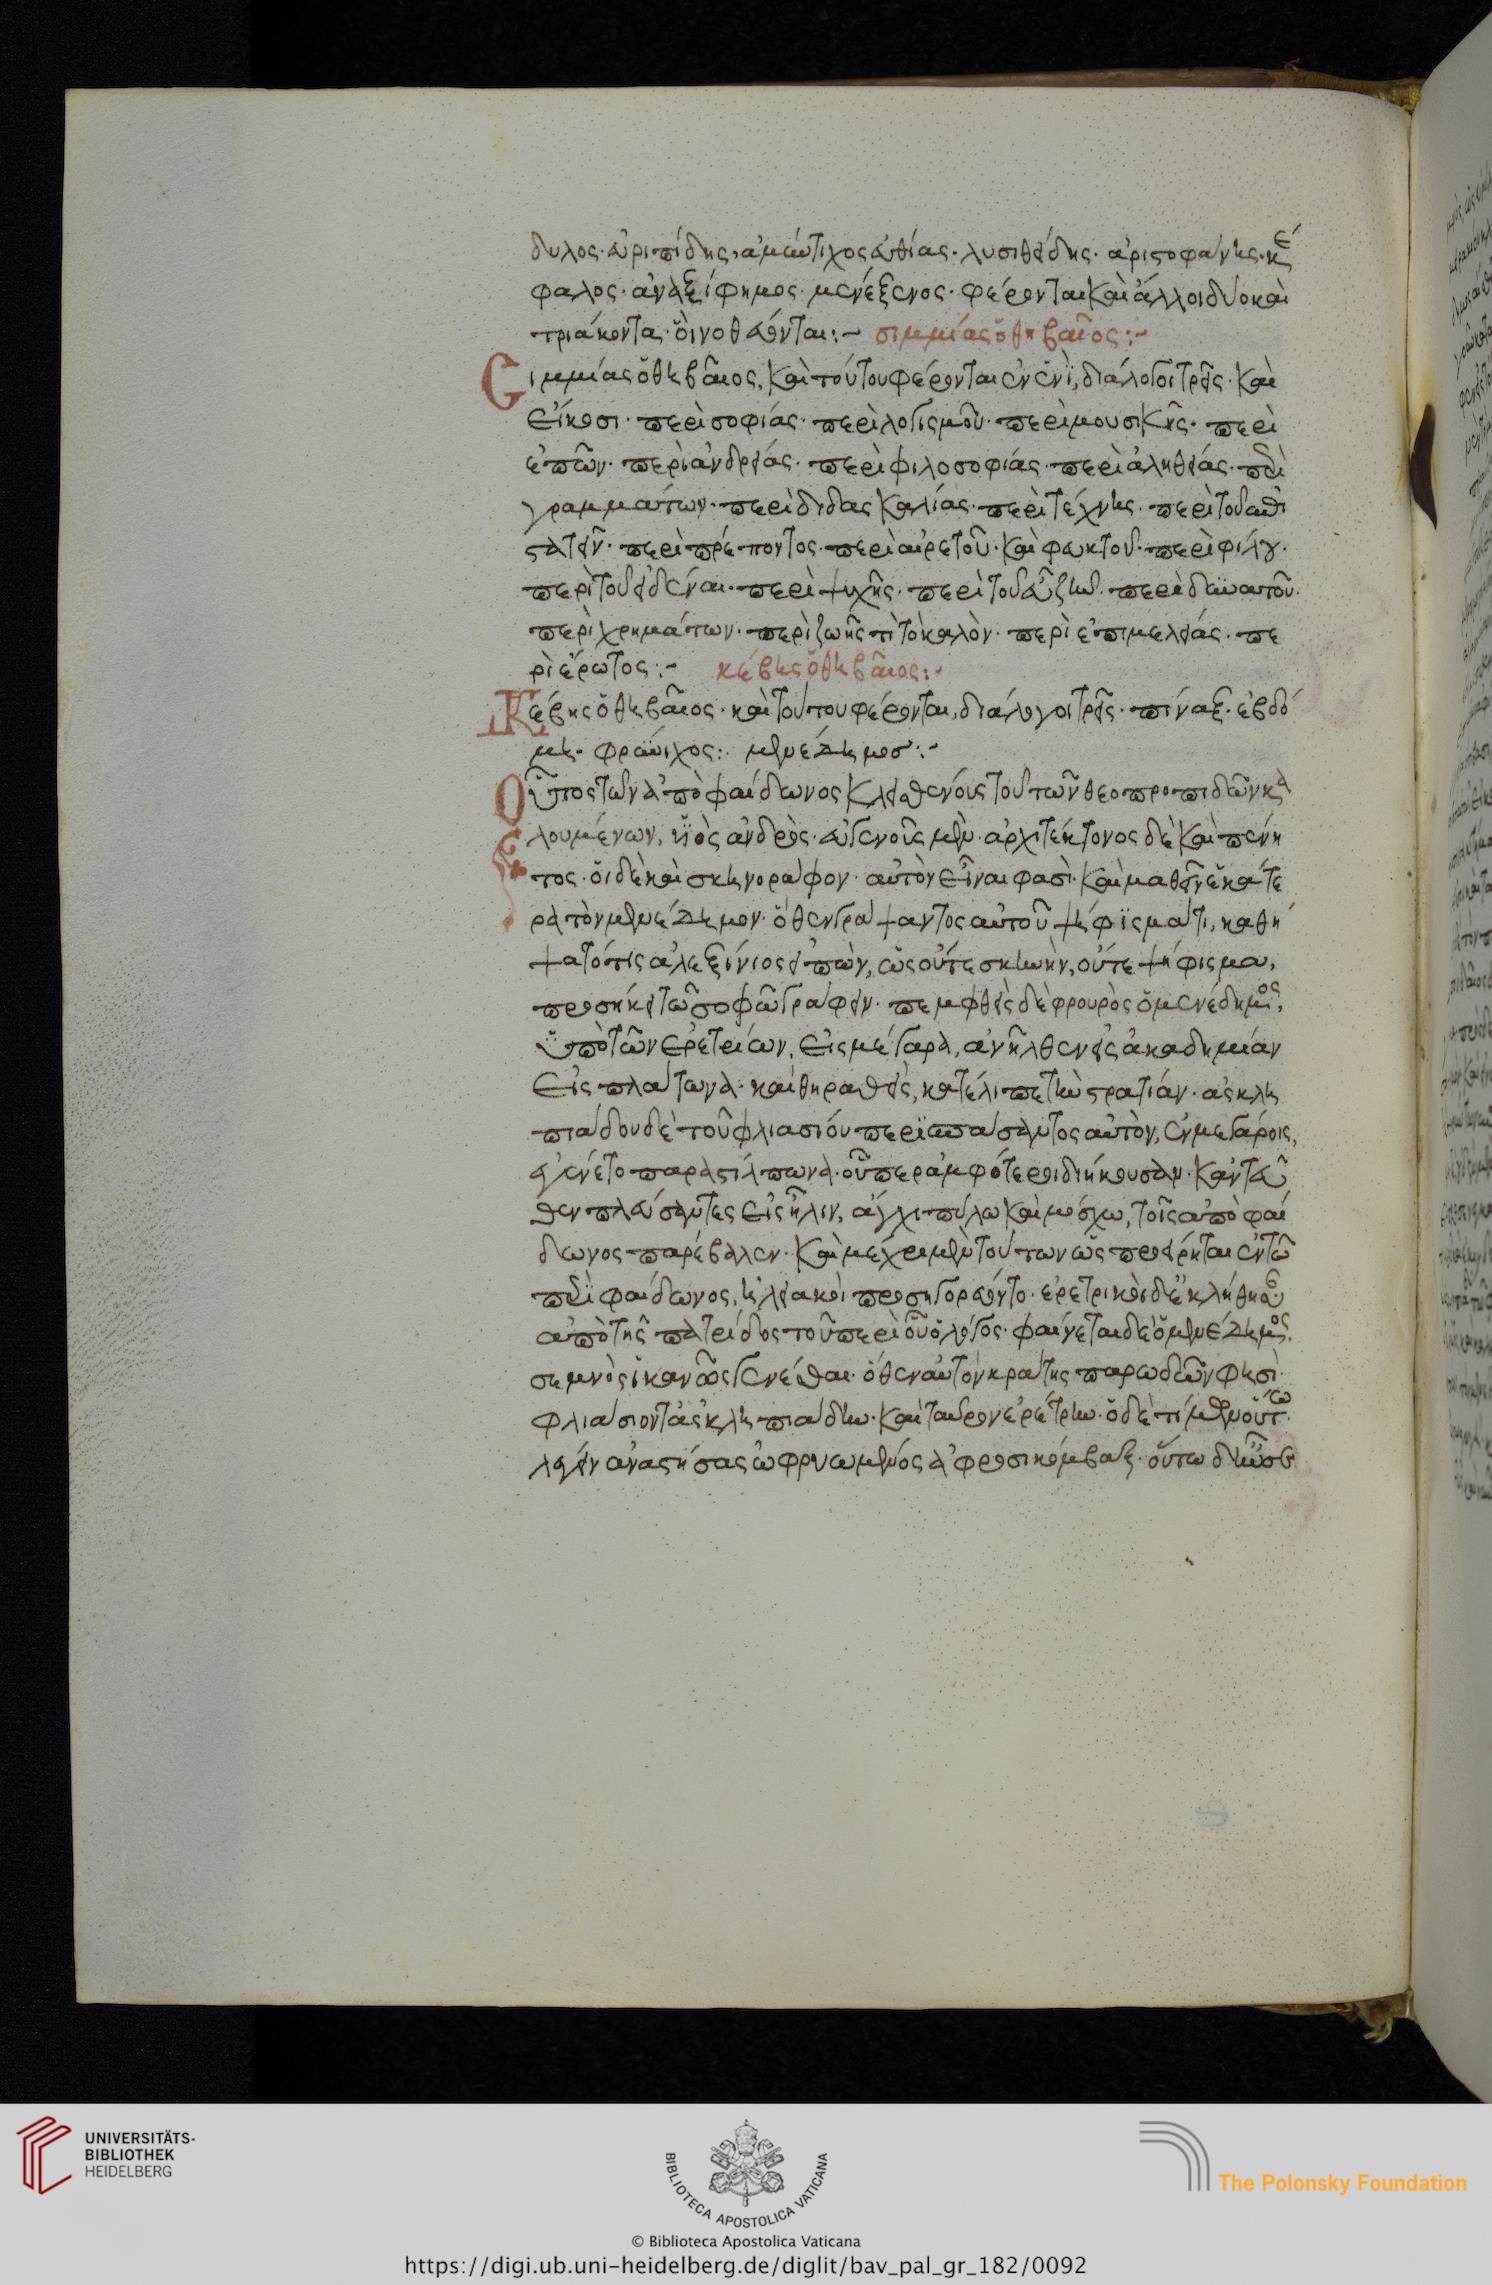 δυλος· εὐριπίδης· ἀμύντιχος εὐθίας· λυσιθείδης· ἀριστοφάνης· κέ
φαλος· ἀναξίφημος· μενέξενος· φέρονται καὶ ἄλλοι δύο καὶ
τριάκοντα· ὃι νοθεύονται:~ σιμμίας ὁ θηβαῖος:~
Σιμμίας ὁ θηβαῖος, καὶ τούτου φέρονται ἐν ἑνὶ, διάλογοι τρεῖς· καὶ
εἴκοσι· περὶ σοφίας· περὶ λογισμοῦ· περὶ μουσικῆς· περὶ
ἐπῶν· περὶ ἀνδρείας· περὶ φιλοσοφίας· περὶ ἀληθείας· περὶ
γραμμάτων· περὶ διδασκαλίας· περὶ τέχνης· περὶ τοῦ ἐπι
στατεῖν· περὶ πρέποντος· περὶ αἱρετοῦ· καὶ φευκτοῦ· περὶ φίλου·
περὶ τοῦ εἰδέναι· περὶ ψυχῆς· περὶ τοῦ εὖ ζῆν· περὶ δυνατοῦ·
περὶ χρημάτων· περὶ ζωῆς τί τὸ καλὸν· περὶ ἐπιμελείας· πε
ρὶ ἔρωτος:~ κέβης ὁ θηβαῖος:~
Κέβης ὁ θηβαῖος· καὶ τούτου φέρονται, διάλογοι τρεῖς· πίναξ· ἑβδό
μη· φρύνιχος:· μενέδημοσ:~
Οὗτος τῶν ἀπὸ φαίδωνος κλεισθένους τοῦ τῶν θεοπροπιδῶν κα
λουμένων, υἱὸς ἀνδρὸς· εὐγενοῦς μὲν· ἀρχιτέκτονος δὲ καὶ πένη
τος· ὁι δὲ καὶ σκηνοράφον· αὐτὸν εἶναι φασὶ· καὶ μαθεῖν ἑκάτε
ρα τὸν μενέδημον· ὅθεν γράψαντος αὐτοῦ ψήφϊσμά τι, καθή
ψατό τις ἀλεξίνιος εἰπὼν, ὡς οὔτε σκηνὴν, οὔτε ψήφισμα,
προσήκει τῶ σοφῶ γράφειν· πεμφθεὶς δὲ φρουρὸς ὁ μενέδημος,
ὑπὸ τῶν ἐρετρίεων, εἰς μέγαρα, ἀνῆλθεν εἰς ἀκαδημίαν
εἰς πλάτωνα· καὶ θηραθεὶς, κατέλιπε τὴν στρατιάν· ἀσκλη
πιάδου δὲ τοῦ φλιασίου περϊσπάσαντος αὐτὸν, ἐν μεγάροις,
ἐγένετο παρὰ στίλπωνα· οὗπερ ἀμφότεροι διήκουσαν· κἀντεῦ
θεν πλεύσαντες εἰς ἦλιν, ἀγχιπύλω καὶ μόσχω, τοῖς ἀπὸ φαί
δωνος παρέβαλεν· καὶ μέχρι μὲν τούτων ὡς προείρηται ἐν τῶ
περὶ φαίδωνος, ἠλειακοὶ προσηγορεύοντο· ἐρετρικοὶ δ' ἐκλήθησαν
ἀπὸ τῆς πατρίδος τοῦ περὶ οὗ ὁ λόγος· φαίνεται δὲ ὁ μενέδημος
σεμνὸς ἱκανῶς γενέσθαι· ὅθεν αὐτὸν κράτης παρωδῶν φησὶ·
φλιάσιον τ' ἀσκληπιάδην· καὶ ταῦρον ἐρέτρην· ὁ δὲ τίμων οὕτω·
λεγεῖν ἀναστήσας ὠφρυωμένος ἀφροσικόμβαξ· οὕτω δ' ἦν σε
UNIVERSITÄTS-
BIBLIOTHEK
HEIDELBERG
BIBLIOTECA APOSTOLICA VATICANA
The Polonsky Foundation
© Biblioteca Apostolica Vaticana
https://digi.ub.uni-heidelberg.de/diglit/bav_pal_gr_182/0092